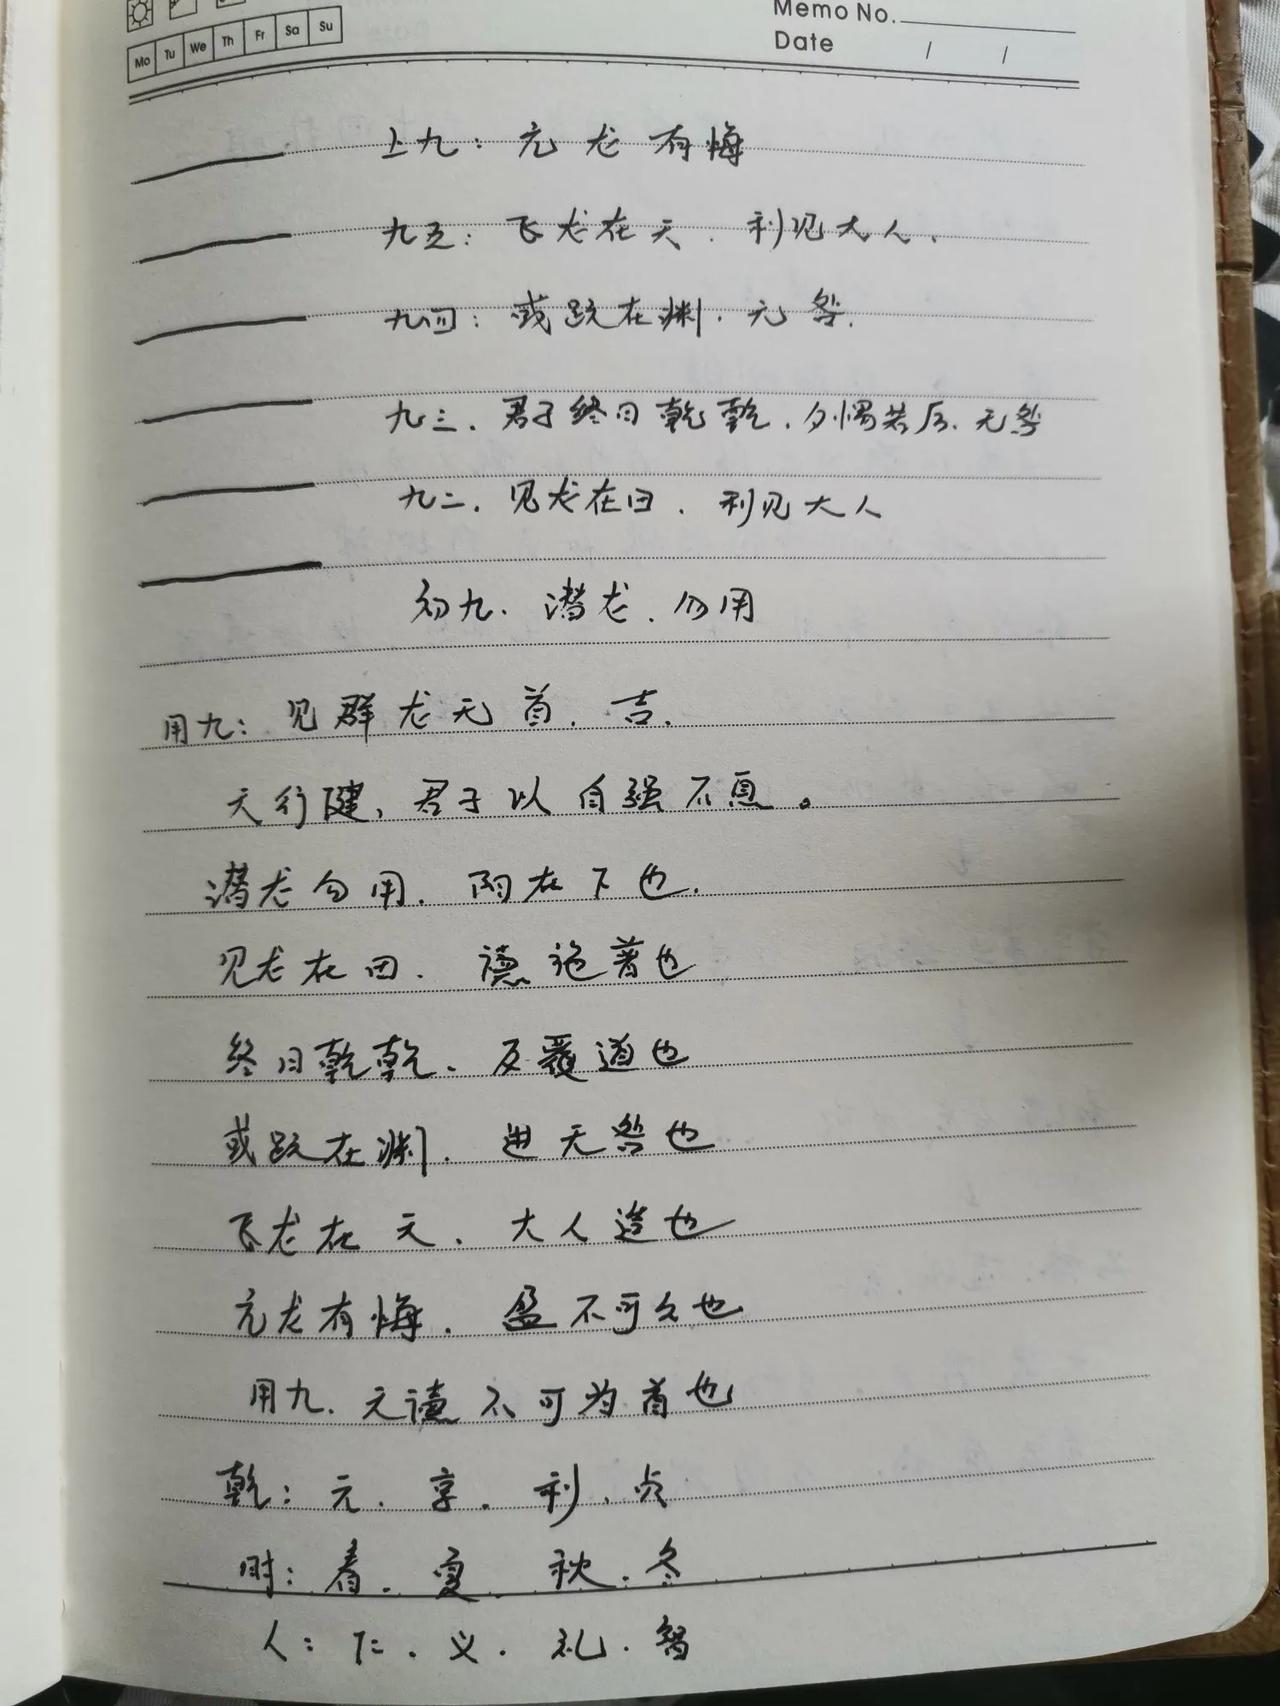 Memo No.
Mo Tu We Th Fr Sa Su
Date / /
上九：亢龙有悔
九五：飞龙在天．利见大人．
九四：或跃在渊．无咎．
九三．君子终日乾乾．夕惕若厉．无咎
九二．见龙在田．利见大人
初九．潜龙．勿用
用九：见群龙无首．吉．
天行健，君子以自强不息。
潜龙勿用．阳在下也．
见龙在田．德施普也
终日乾乾．反覆道也
或跃在渊．进无咎也
飞龙在天．大人造也
亢龙有悔．盈不可久也
用九．天德不可为首也
乾：元．亨．利．贞
时：春．夏．秋．冬
人：仁．义．礼．智